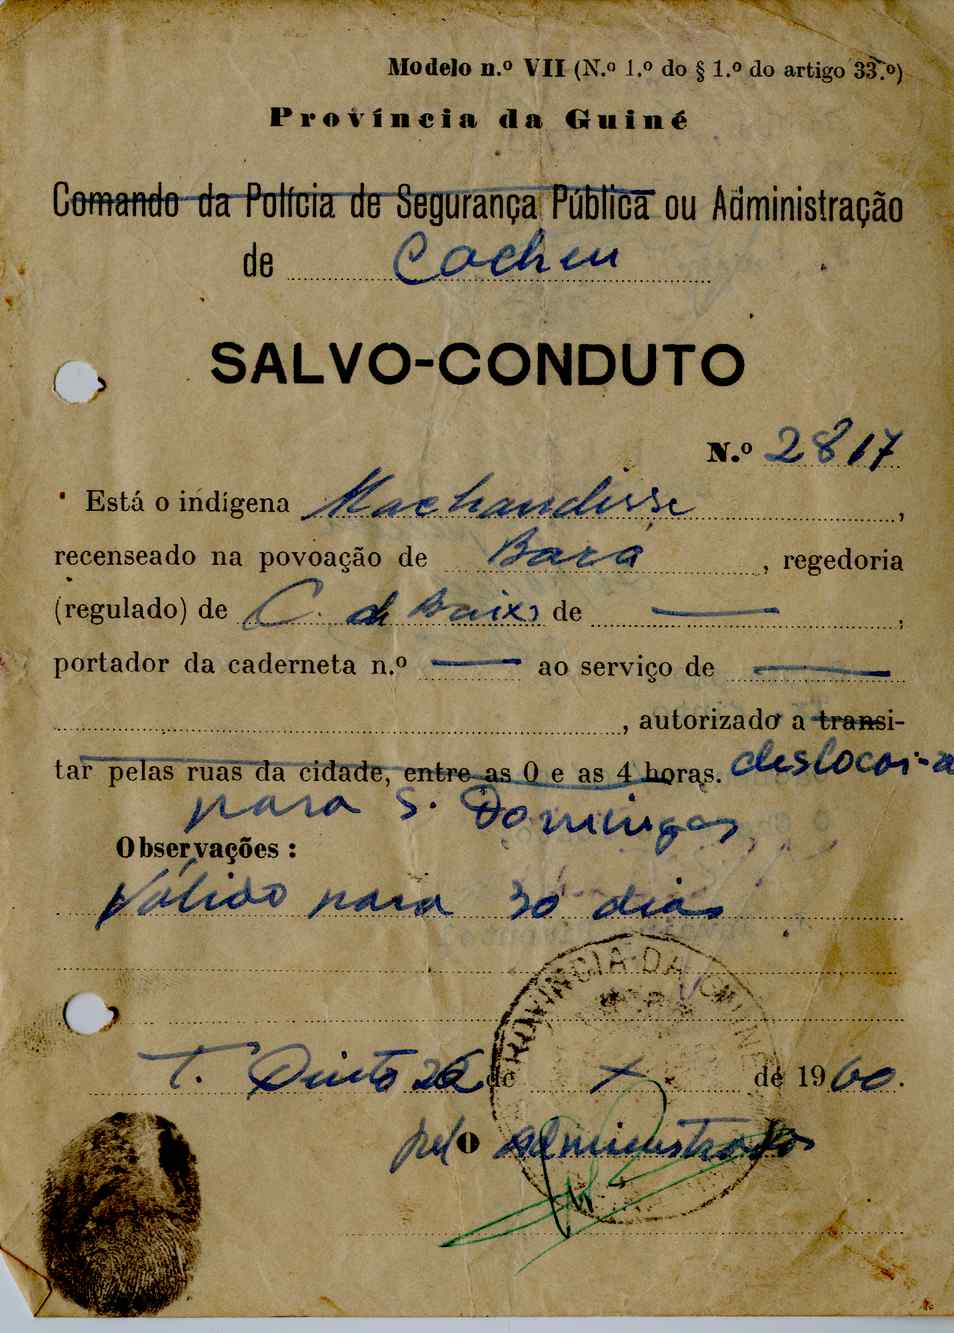 Modelo n.º VII (N.º 1.º do § 1.º do artigo 33.º)
Província da Guiné
Comando da Polícia de Segurança Pública ou Administração
de Cacheu
SALVO-CONDUTO
N.º 2817
Está o indígena Machandisse,
recenseado na povoação de Bará, regedoria
(regulado) de C. de Baixo de ——,
portador da caderneta n.º —— ao serviço de ——
, autorizado a transi-
tar pelas ruas da cidade, entre as 0 e as 4 horas. deslocar-a
para S. Domingos
Observações:
Válido para 30 dias
PROVÍNCIA DA GUINÉ
T. Pinto 26 de X de 1960.
pelo Administrador